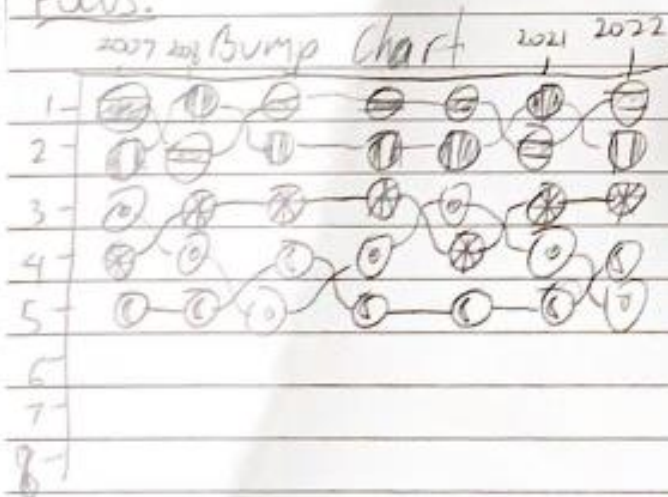 Focus:
2007 Bump Chart 2021 2022
1
2
3
4
5
6
7
8